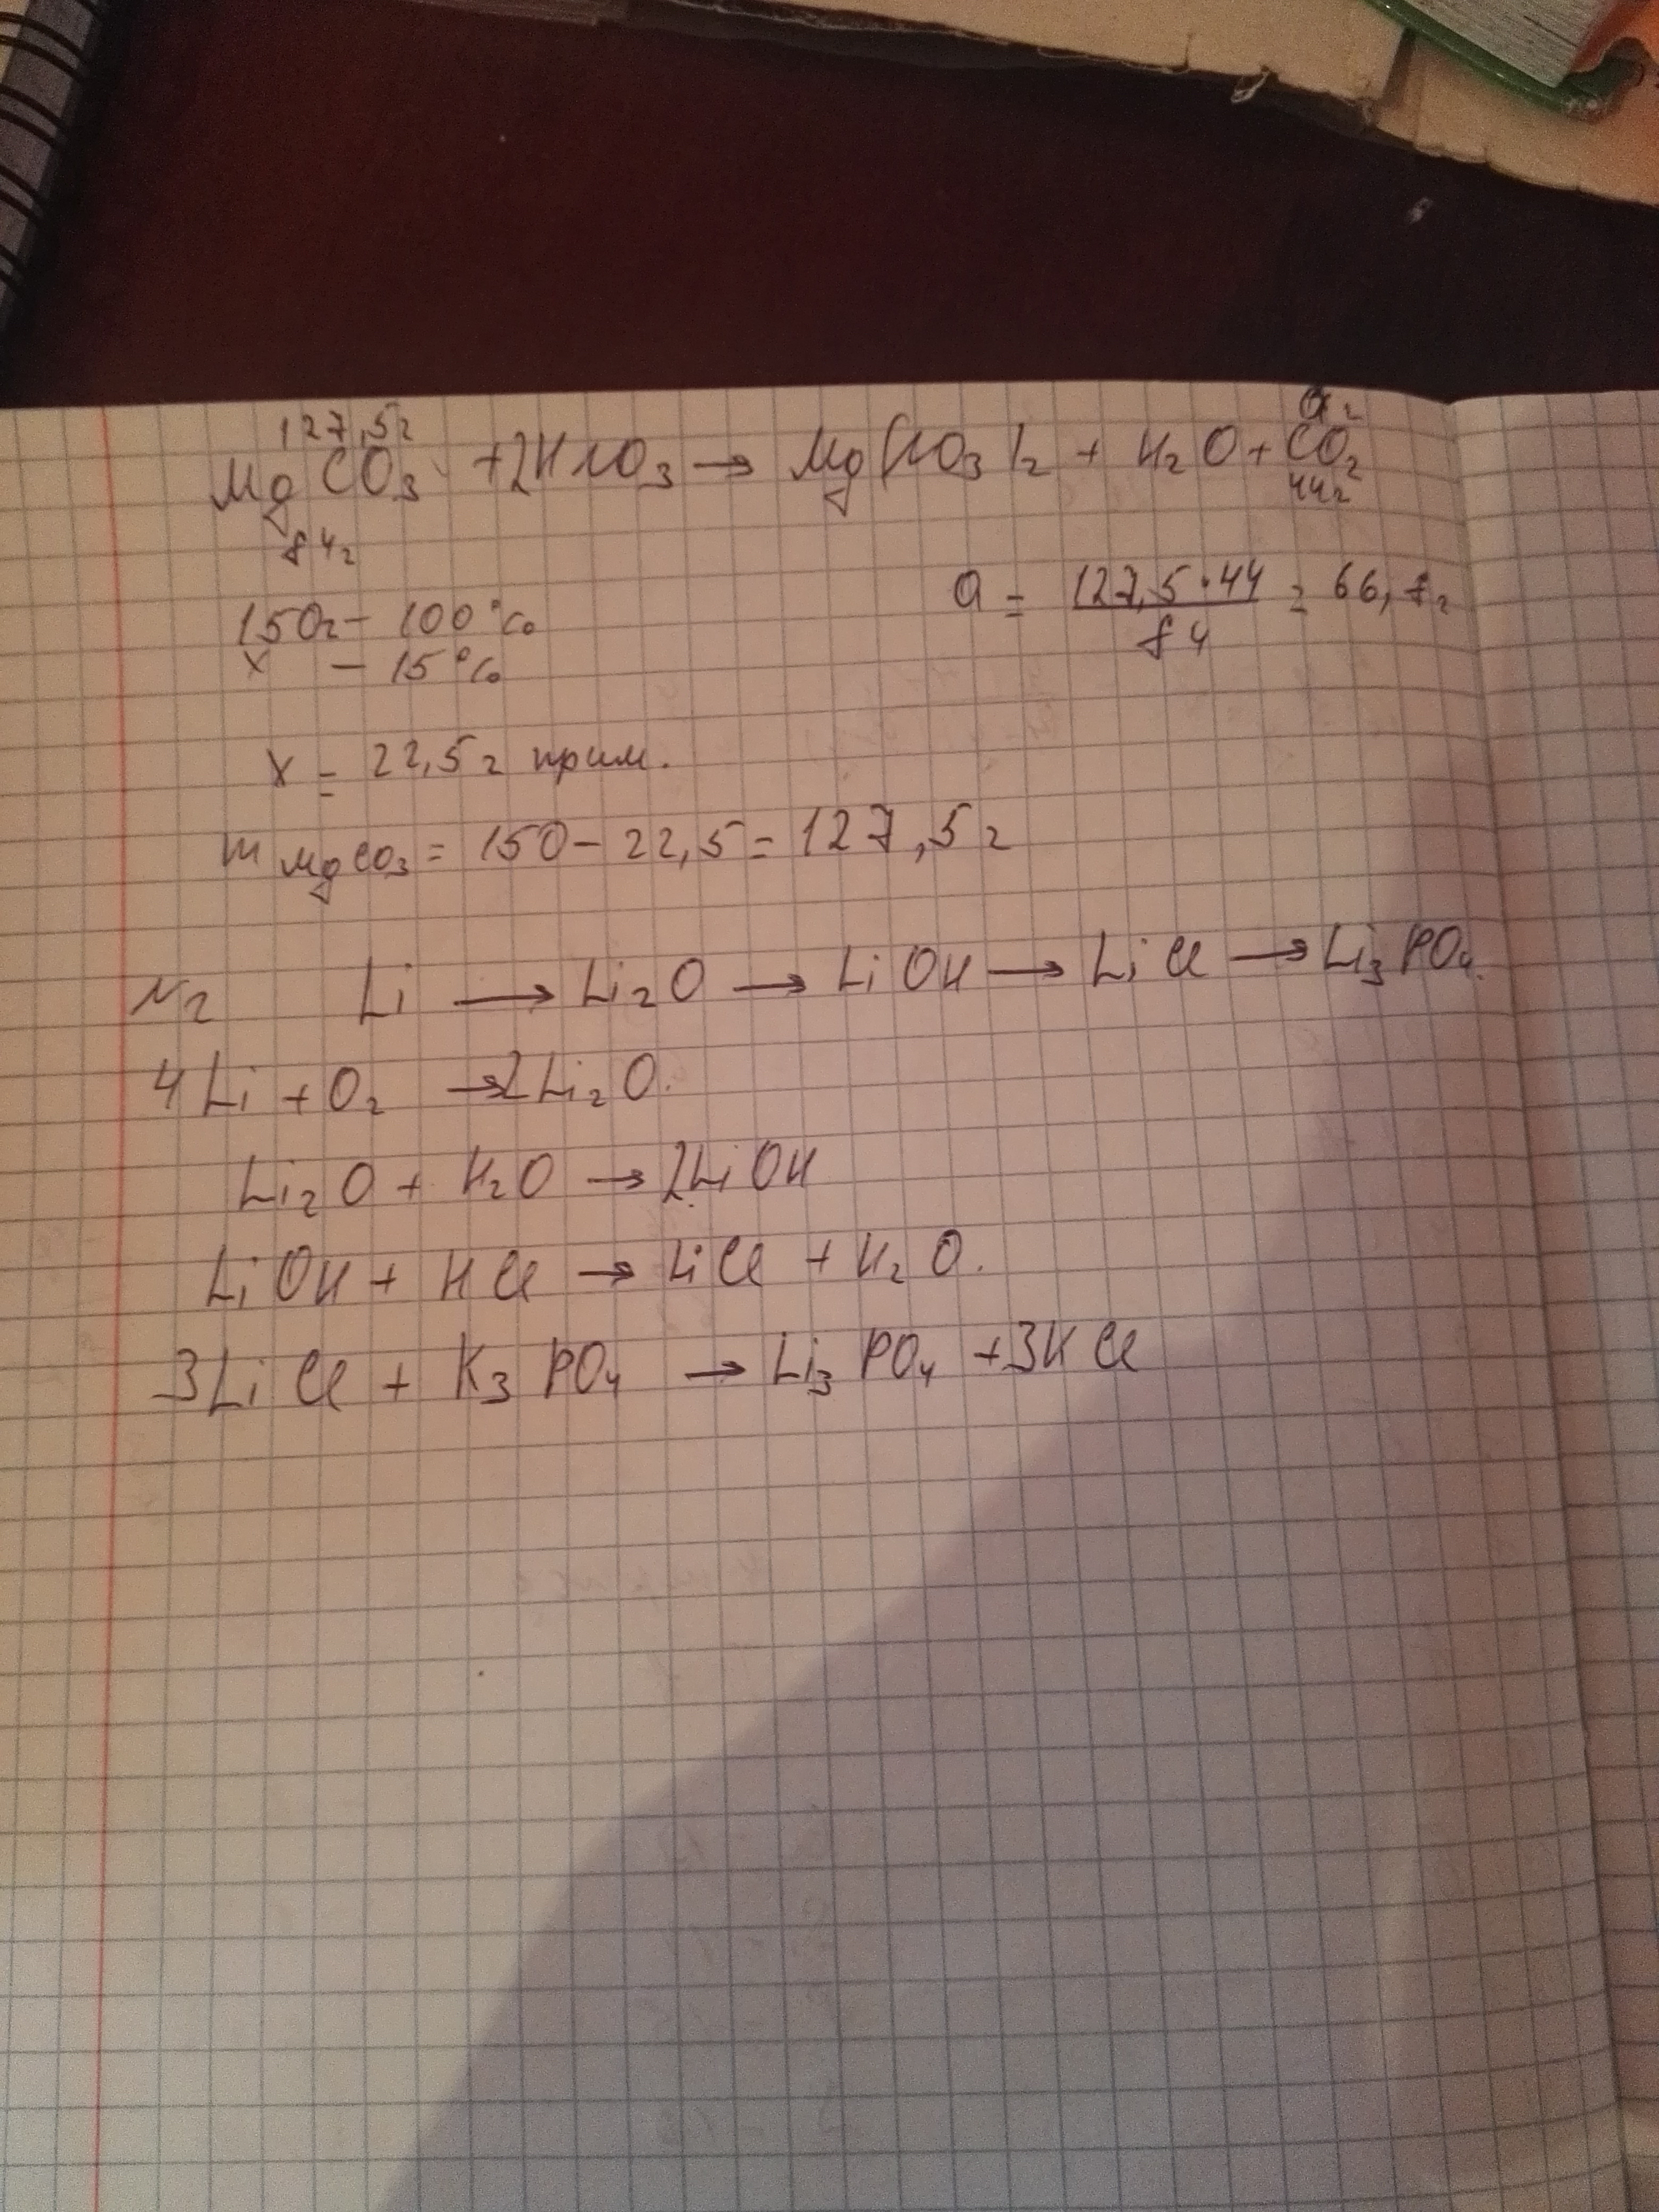 127,5г аг
MgCO₃ + 2HNO₃ → Mg(NO₃)₂ + H₂O + CO₂
84г 44г
150г – 100%
x – 15%
a = 127,5·44 / 84 = 66,7г
x = 22,5г прим.
m MgCO₃ = 150 – 22,5 = 127,5г
N2 Li → Li₂O → LiOH → LiCl → Li₃PO₄.
4Li + O₂ → 2Li₂O.
Li₂O + H₂O → 2LiOH
LiOH + HCl → LiCl + H₂O.
3LiCl + K₃PO₄ → Li₃PO₄ + 3KCl